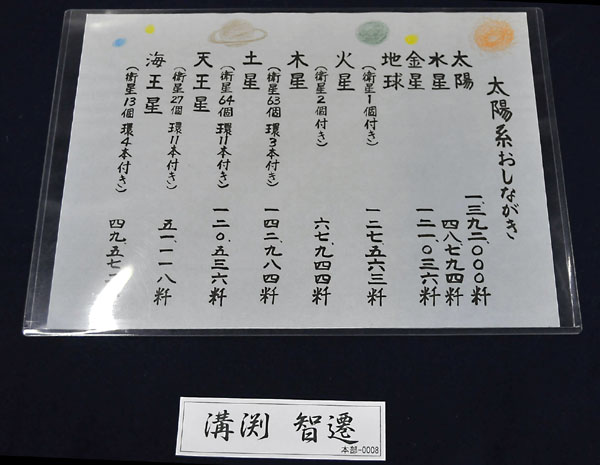 太陽系おしながき
太陽 一、三九二、〇〇〇粁
水星 四八七九四粁
金星 一二一〇三六粁
地球 (衛星1個付き) 一二七五六三粁
火星 (衛星2個付き) 六七九四四粁
木星 (衛星63個 環3本付き) 一四二、九八四粁
土星 (衛星64個 環11本付き) 一二〇、五三六粁
天王星 (衛星27個 環11本付き) 五一、一一八粁
海王星 (衛星13個 環4本付き) 四九、五七
溝渕 智遷
本部-0008